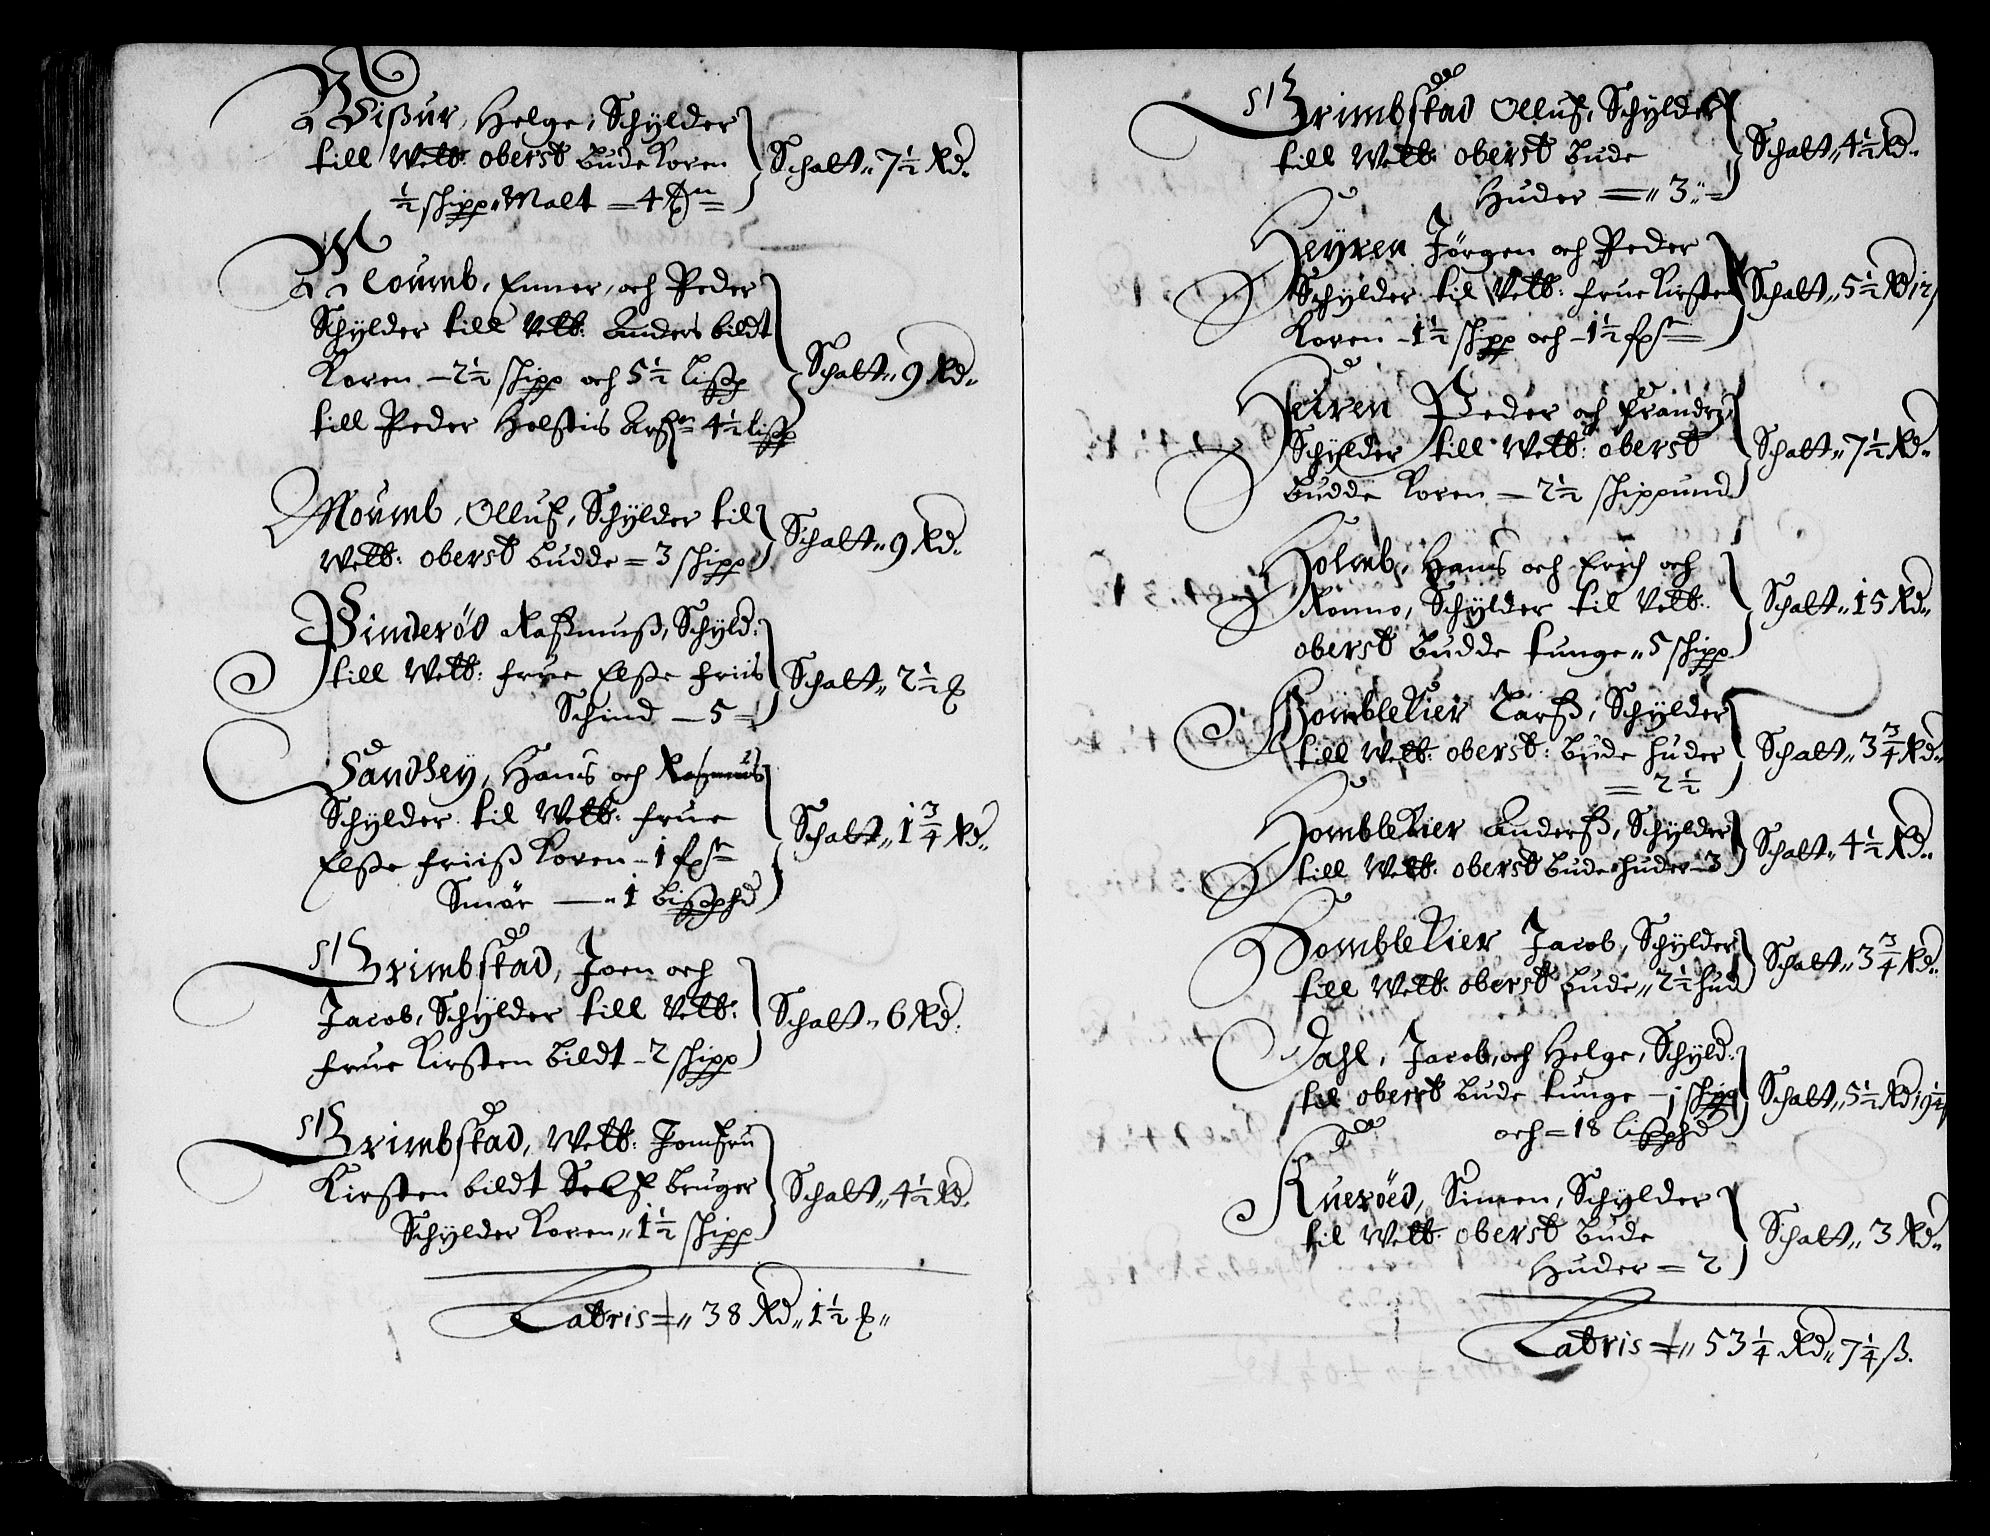 Wißur, Helge, Schÿlder
till Welb: oberst Bude Koren
½ shipp: Malt = 4
Schalt„ 7½ Rd.
Moumb, Enner, och Peder
Schÿlder till Velb: Anders bildt
Koren – 2½ shipp och 5½ lißp
till Peder Helstis Arf: 4½ lißp
Schalt„ 9 Rd„
Moumb, Olluf, Schÿlder til
Welb: oberst Budde = 3 shipp
Schalt„ 9 Rd.
Pinderöd Raßmuß, Schÿld:
till Welb: frue Elße friis
Schind – 5 =
Schalt„ 2½
Sandheÿ, Hans och Rasmus
Schÿlder til Welb: frue
Elße friiß Koren – 1
Smör – „ 1 Bißphd
Schalt„ 1¾ Rd„
Grimbstad, Joen och
Jacob, Schÿlder till Velb:
frue Kirsten Bildt – 2 shipp
Schalt„ 6 Rd.
Grimbstad, Welb: Jomfru
Kirsten bildt Self Bruger
Schÿlder Koren„ 1½ shipp
Schalt„ 4½ Rd.
Latris = „ 38 Rd„ 1½
Grimbstad Olluf, Schÿlder
till Welb: oberst Bude
Huder = „ 3 „ =
Schalt„ 4½ Rd„
Heÿren Jörgen och Peder
Schÿlder til Velb: frue Kirsten
Koren – 1½ shipp och – 1½
Schalt„ 5½ Rd 12
Heiren Peder och
Schÿlder till Welb: oberst
Budde Koren – 2½ shippund
Schalt„ 7½ Rd„
Holmb, Hans och Erich och
Ronno, Schÿlder til Velb:
oberst Budde tunge „ 5 shipp
Schalt„ 15 Rd„
Homblekier Larß, Schÿlder
till Welb: oberst: Bude huder
= 2½
Schalt„ 3¾ Rd„
Homblekier Anderß, Schÿlder
till Welb: oberst Bude huder – 3
Schalt„ 4½ Rd„
Homblekier Jacob, Schÿlder
till Welb: oberst Bude „ 2½ hud
Schalt„ 3¾ Rd„
Dahl, Jacob, och Helge, Schÿld:
til oberst Bude tunge – 1 shipp
och = 18 lißphd
Schalt„ 5½ Rd 19¼
Kueröed, Simen, Schÿlder
til Welb: oberst Bude
Huder = 2
Schalt„ 3 Rd„
Latris = „ 53¼ Rd„ 7¼ ß.